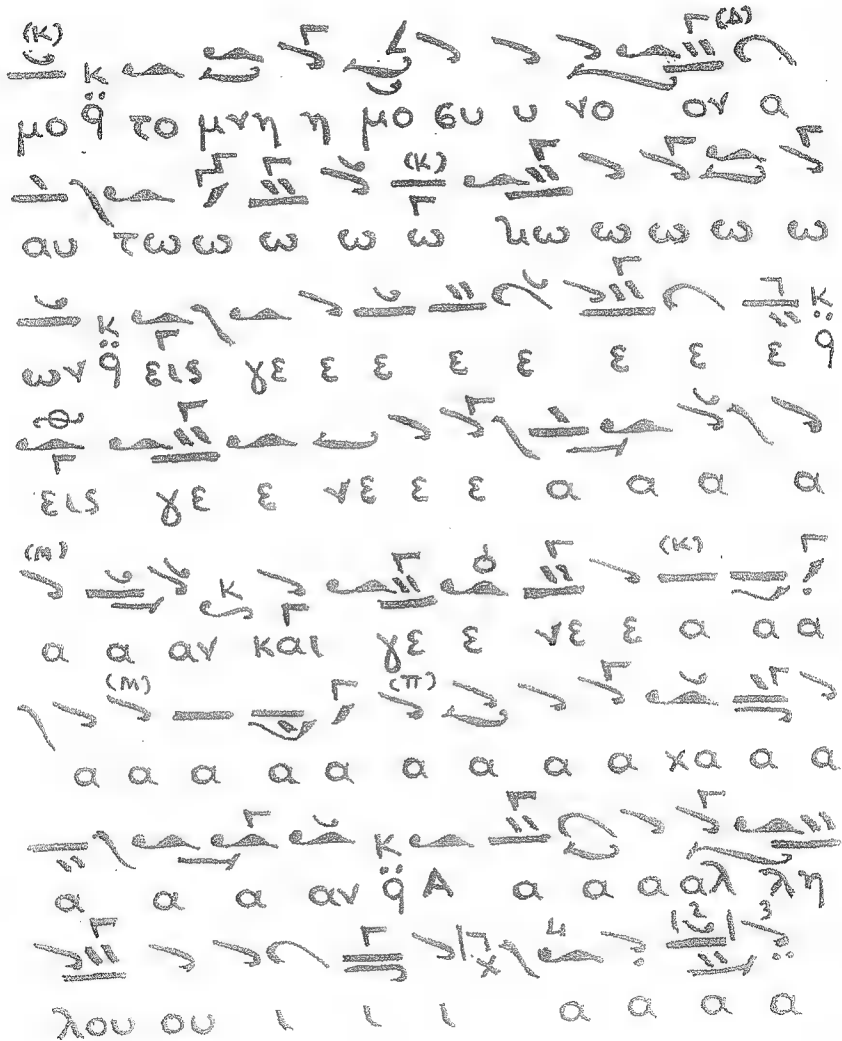 (κ)
κ
(Δ)
μο ϙ το μνη η μο συ υ νο ον α
(κ)
αυ τω ω ω ω ω κω ω ω ω ω
κ κ
ων ϙ εις γε ε ε ε ε ε ε ε ϙ
εις γε ε νε ε ε α α α α
(Μ) κ (Κ)
α α αν και γε ε νε ε α α α
(Μ) (π)
α α α α α α α α α χα α α
κ
α α α αν ϙ Α α α α αλ λη
4 2 3
λου ου ι ι ι α α α α